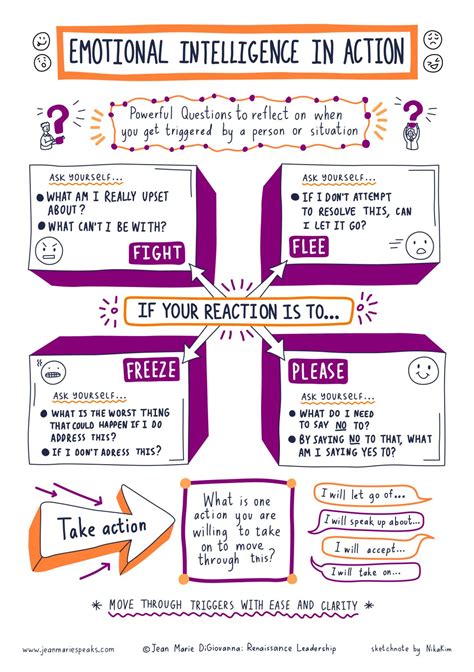 EMOTIONAL INTELLIGENCE IN ACTION
Powerful Questions to reflect on when
you get triggered by a person or situation
? ?
ASK YOURSELF...
• WHAT AM I REALLY UPSET
ABOUT?
• WHAT CAN'T I BE WITH?
FIGHT
ASK YOURSELF...
• IF I DON'T ATTEMPT
TO RESOLVE THIS, CAN
I LET IT GO?
FLEE
IF YOUR REACTION IS TO...
FREEZE
ASK YOURSELF...
• WHAT IS THE WORST THING
THAT COULD HAPPEN IF I DO
ADDRESS THIS?
• IF I DON'T ADRESS THIS?
PLEASE
ASK YOURSELF...
• WHAT DO I NEED
TO SAY NO TO?
• BY SAYING NO TO THAT, WHAT
AM I SAYING YES TO?
Take action
What is one
action you are
willing to take
on to move
through this?
I will let go of...
I will speak up about...
I will accept...
I will take on...
* MOVE THROUGH TRIGGERS WITH EASE AND CLARITY *
www.jeanmariespeaks.com
©Jean Marie DiGiovanna: Renaissance Leadership
sketchnote by NikaKim